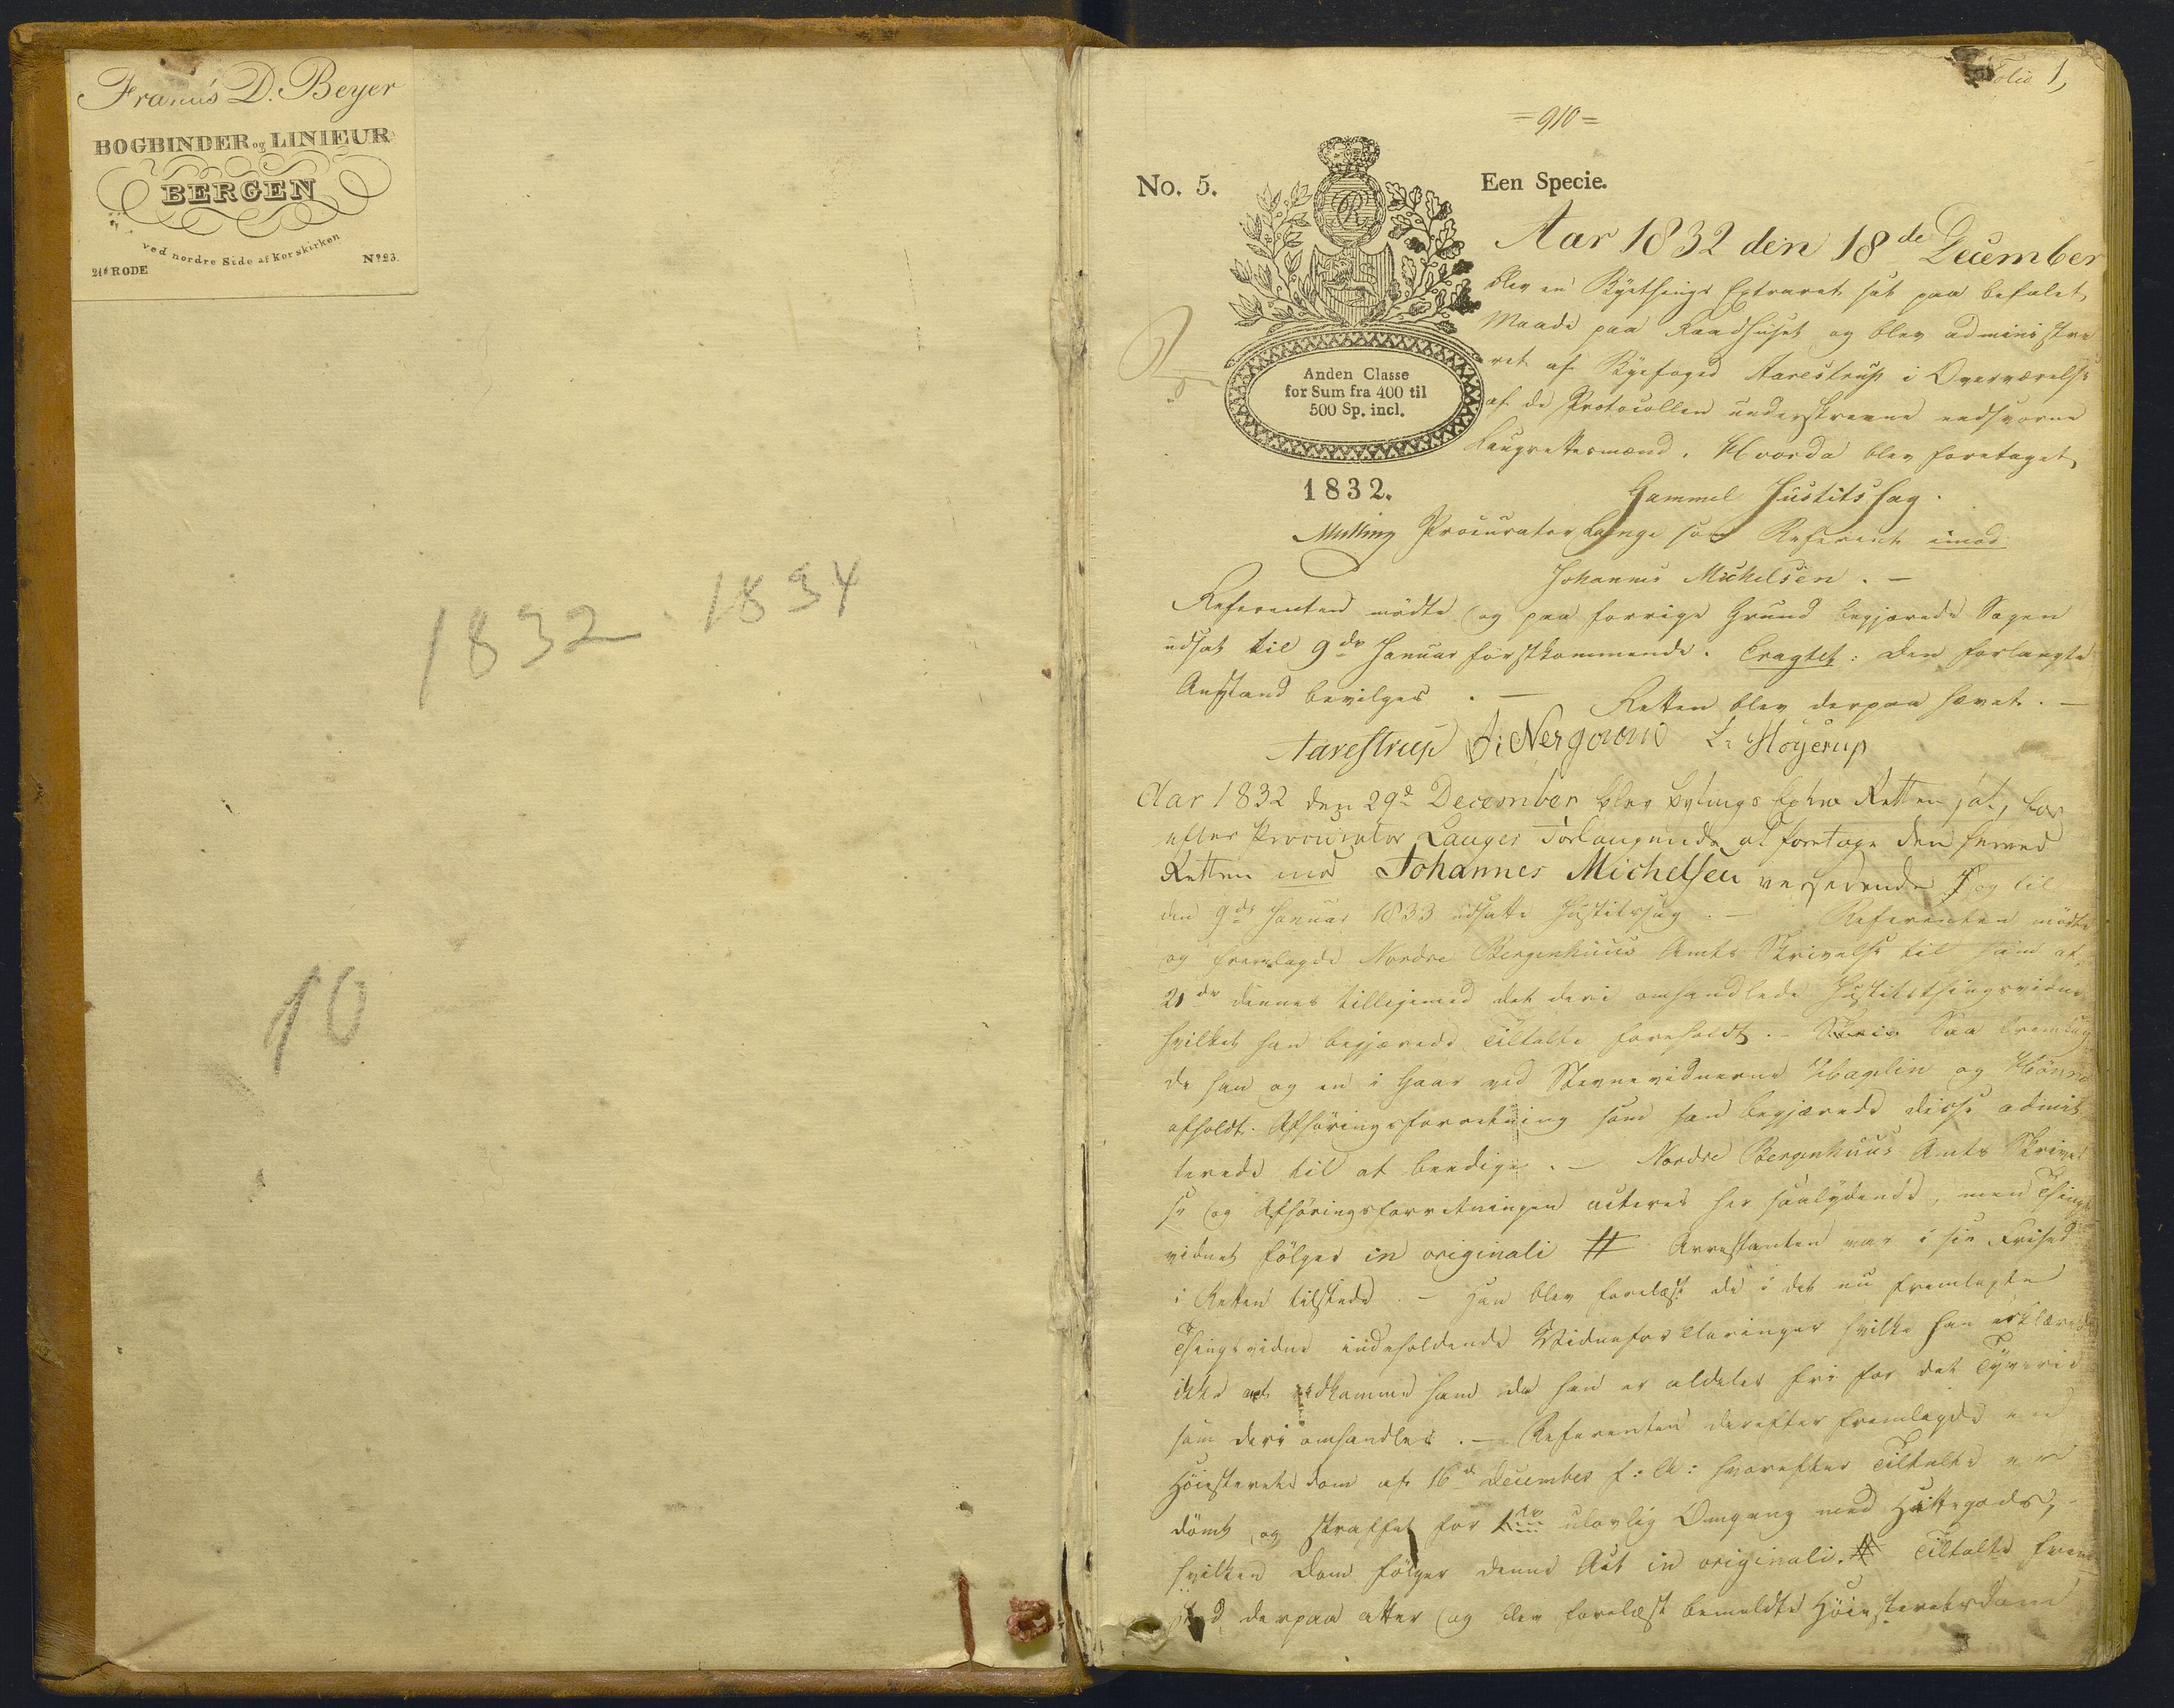 Frantz D. Beyer
BOGBINDER og LINIEUR
BERGEN
ved nordre Side af Korskirken
21de RODE No 23.
1832 - 1834
10
Folio 1,
=910=
No. 5. Een Specie.
Anden Classe
for Sum fra 400 til
500 Sp. incl.
1832.
Aar 1832 den 18de December
blev en Byethings Extraret sat paa befalet
Maade paa Raadhuset og blev administre
ret af Byefoged Aarestrup i Overværelse
af de Protocollen underskrevne eedsvorne
Laugrettesmænd. Hvorda blev foretaget
Gammel Justitssag.
Procurator Lange som Referent imod
Johannes Michelsen. -
Referenten mødte og paa forrige Grund begjærede Sagen
udsat til 9de Januar førstkommende. Eragtet: den forlangte
Anstand bevilges. - Retten blev derpaa hævet. -
Aarestrup L. Høyerup
Aar 1832 den 29de December blev Bytings Extra Retten sat, for
efter Procurator Langes Forlangende at foretage den herved
Retten mod Johannes Michelsen verserende og til
den 9de Januar 1833 udsatte Justitssag. - Referenten mødte
og fremlagde Nordre Bergenhuus Amts Skrivelse til ham af
21de dennes tilligemed det deri omhandlede Justitsthingsvidne
hvilket han begjærede Tiltalte foreholdt. - Saa fremlag
de han og en i Gaar ved Stevnevidnerne Hagelin og
afholdt Afhøringsforretning som han begjærede disse admit
terede til at beedige. - Nordre Bergenhuus Amts Skrivel
se og Afhøringsforretningen acteres her saalydende, men Things
vidnet følger in originali # Arrestanten var i sin Frihed
i Retten tilstede. - Han blev forelæst de i det nu fremlagte
Thingsvidne indeholdende Vidneforklaringer hvilke han erklærede
ikke at vedkomme ham da han er aldeles fri for det Tyverie
som deri omhandles. - Referenten derefter fremlagde en
Høiesteretsdom af 16de December f: A: hvorefter Tiltalte er
dømt og straffet for ulovlig Omgang med Hittegods,
hvilken Dom følger denne Act in originali. # Tiltalte frem
stod derpaa atter og blev forelæst bemeldte Høiesteretsdom